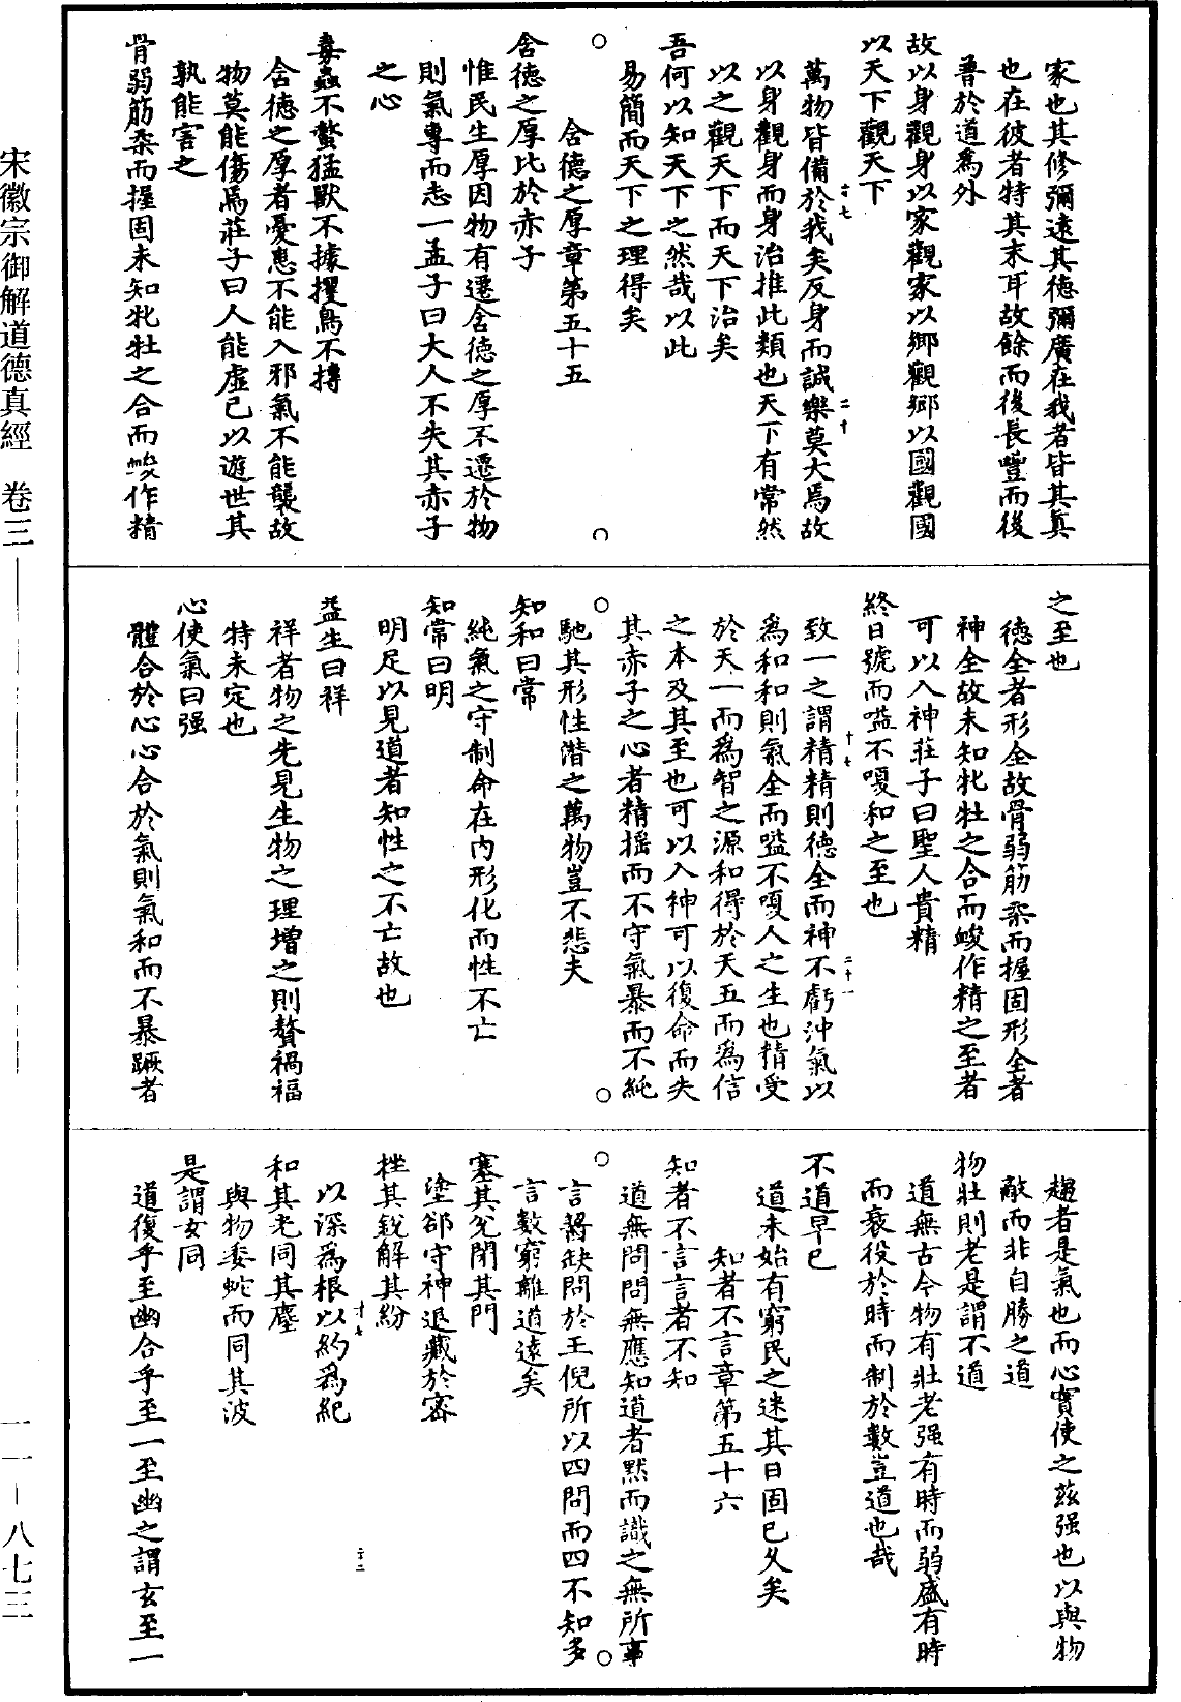 家也其修彌遠其德彌廣在我者皆其眞
也在彼者特其末耳故餘而後長豐而後
普於道爲外
故以身觀身以家觀家以鄉觀鄉以國觀國
以天下觀天下
萬物皆備於我矣反身而誠樂莫大焉故
以身觀身而身治推此類也天下有常然
以之觀天下而天下治矣
吾何以知天下之然哉以此
易簡而天下之理得矣
含德之厚章第五十五
含德之厚比於赤子
惟民生厚因物有遷含德之厚不遷於物
則氣專而志一孟子曰大人不失其赤子
之心
毒蟲不螫猛獸不據攫鳥不搏
含德之厚者憂患不能入邪氣不能襲故
物莫能傷焉莊子曰人能虛己以遊世其
孰能害之
骨弱筋柔而握固未知牝牡之合而峻作精
之至也
德全者形全故骨弱筋柔而握固形全者
神全故未知牝牡之合而峻作精之至者
可以入神莊子曰聖人貴精
終日號而嗌不嗄和之至也
致一之謂精精則德全而神不虧沖氣以
爲和和則氣全而嗌不嗄人之生也精受
於天一而爲智之源和得於天五而爲信
之本及其至也可以入神可以復命而失
其赤子之心者精搖而不守氣暴而不純
馳其形性潛之萬物豈不悲夫
知和曰常
純氣之守制命在內形化而性不亡
知常曰明
明足以見道者知性之不亡故也
益生曰祥
祥者物之先見生物之理增之則贅禍福
特未定也
心使氣曰强
體合於心心合於氣則氣和而不暴蹶者
趨者是氣也而心實使之玆强也以與物
敵而非自勝之道
物壯則老是謂不道
道無古今物有壯老强有時而弱盛有時
而衰役於時而制於數豈道也哉
不道早已
道未始有窮民之迷其日固已久矣
知者不言章第五十六
知者不言言者不知
道無問問無應知道者默而識之無所事
言齧缺問於王倪所以四問而四不知多
言數窮離道遠矣
塞其兌閉其門
塗郤守神退藏於密
挫其銳解其紛
以深爲根以約爲紀
和其光同其塵
與物委蛇而同其波
是謂玄同
道復乎至幽合乎至一至幽之謂玄至一
六七
二十
十七
二十一
十七
二十二
宋徽宗御解道德真經 卷三
一一－八七三